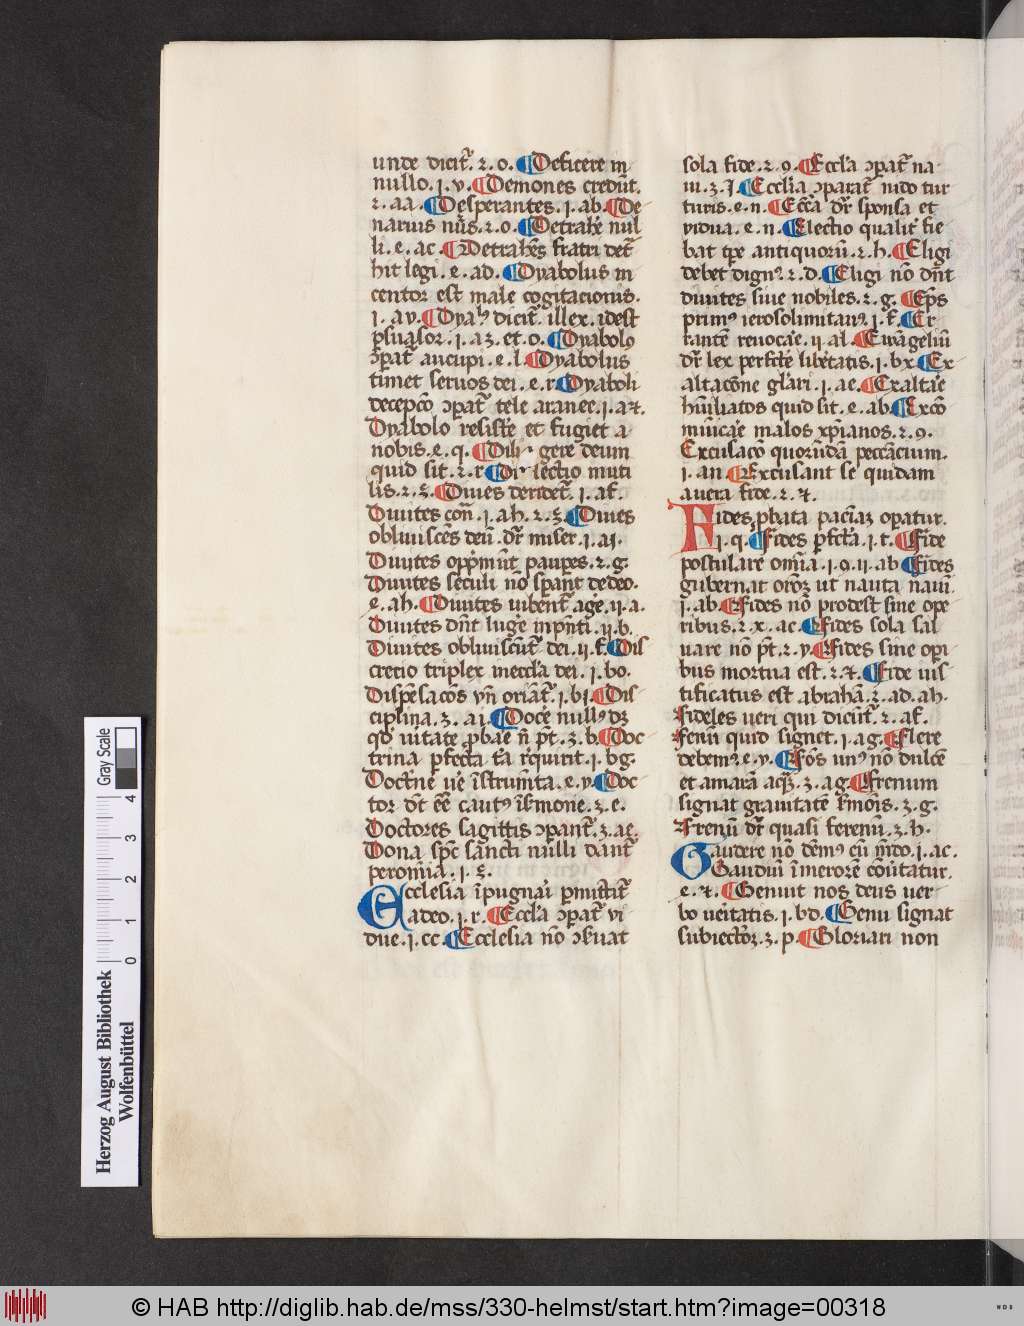 unde dicit᷑. 2. o. ¶Deficere in
nullo. i. v. ¶Demones credūt.
2. aa. ¶Desperantes. i. ab. ¶De
narius 2. o. ¶Detrahe᷑ nul
li. e. ac. ¶Detrahēs fratri det᷑
hit legi. e. ad. ¶Dyabolus in
centor est male cogitacionis.
i. av. ¶Dyabꝰ dicit᷑. illex. idest
ꝑsuasor. i. a3. et. o. ¶Dyabolꝰ
ↄpat᷑ aucupi. e. l. ¶Dyabolus
timet seruos dei. e. r ¶Dyaboli
decepc̄o ↄpat᷑ tele aranee. i. a⁊.
Dyabolo resist᷑e et fugiet a
nobis. e. q. ¶Dili gere deum
quid sit. 2. r ¶Di lectio muti
lis. 2. ¶Diues derident᷑. i. af.
Diuites i. ah. 2. ¶Diues
obliuiscēs dei. dr̄ miser. i. ai.
Diuites opp̄mūt pauꝑes. 2. g.
Diuites seculi nō sꝑant de deo.
e. ah. ¶Diuites uibent᷑ age᷑. ii. a.
Diuites dn̄t luge᷑ ii. b.
Diuites obliuiscūt᷑ dei. ii. f. ¶Dis
cretio triplex in eccl̄a dei. i. bo.
Dispēsac̄os oriāt᷑. i. bi. ¶Dis
ciplina. 3. ai. ¶Doce᷑ nullꝰ dꝫ
qd̓ uitate ꝓbae᷑ n̄ pt̄. 3. b. ¶Doc
trina ꝑfecta t̄ra r̓quirit. i. bg.
Doct̄ne ue᷑ īstrum̄ta. e. y. ¶Doc
tor d̄t eē cautꝰ ī ẜmone. 3. e.
Doctores sagittis ↄpant᷑. 3. ae.
Dona sp̄c sancti nulli dant᷑
i.
Ecclesia īpugnai᷑ ꝑmittit᷑
a deo. i. r. ¶Eccl̄a ↄpat᷑ vi
due. i. cc. ¶Ecclesia nō ↄẜuat
sola fide. 2. o. ¶Eccl̄a ↄpat᷑ na
ui. 3. l ¶Eccl̄ia ↄparat᷑ nido tur
turis. e. n. ¶Ecc̄a dr̄ sponsa et
vidua. e. n. ¶Electio qualit᷑ fie
bat tꝑe antiquorū. 2. h. ¶Eligi
debet dignꝰ. 2. d. ¶Eligi nō dn̄t
diuites siue nobiles. 2. g. ¶Ep̄s
primꝰ ierosolimitanꝰ. i. f. ¶Er
rantem reuocae᷑. ii. al. ¶Ewangeliū
dr̄ lex ꝑfecte lib᷑tatis. i. bx. ¶Ex
altac̄one gl̄ari. i. ae. ¶Exaltae᷑
hūiliatos quid sit. e. ab. ¶Exco
mūicae᷑ malos xp̄ianos. 2. 9.
Excusac̄o quorūdā pecc̄ancium.
i. an. ¶Excusant se quidam
a uera fide. 2. ⁊.
Fides ꝓbata pacīaꝫ oꝑatur.
i. q. ¶Fides ꝑfc̄ta. i. t. ¶Fide
postulare om̄ia. i. 9. ii. ab ¶Fides
gubernat orōꝫ ut nauta nauī.
i. ab. ¶Fides nō prodest sine ope
ribus. 2. x. ac. ¶Fides sola sal
uare nō pt̄. 2. y. ¶Fides sine opi᷑
bus mortua est. 2. ⁊. ¶Fide ius
tificatus est abrahā. 2. ad. ah.
Fideles ueri qui dicūt᷑. 2. af.
Fenū quid signet. i. ag. ¶Flere
debemꝰ. e. y. ¶Fōs unꝰ nō dulcē
et amarā aqꝫ. 3. ag. ¶Frenum
signat grauitatē ẜmōis. 3. g.
Frenū dr̄ quasi ferenū. 3. h.
Gaudere nō dem̄ꝰ cū mūdo. i. ac.
Gaudiū ī merorē conūtatur.
e. ⁊. ¶Genuit nos deus uer
bo ueritatis. i. bd. ¶Genu signat
subiectōꝫ. 3. p ¶Gloriari non
Herzog August Bibliothek
Wolfenbüttel
0 1 2 3 4
Gray Scale
© HAB http://diglib.hab.de/mss/330-helmst/start.htm?image=00318